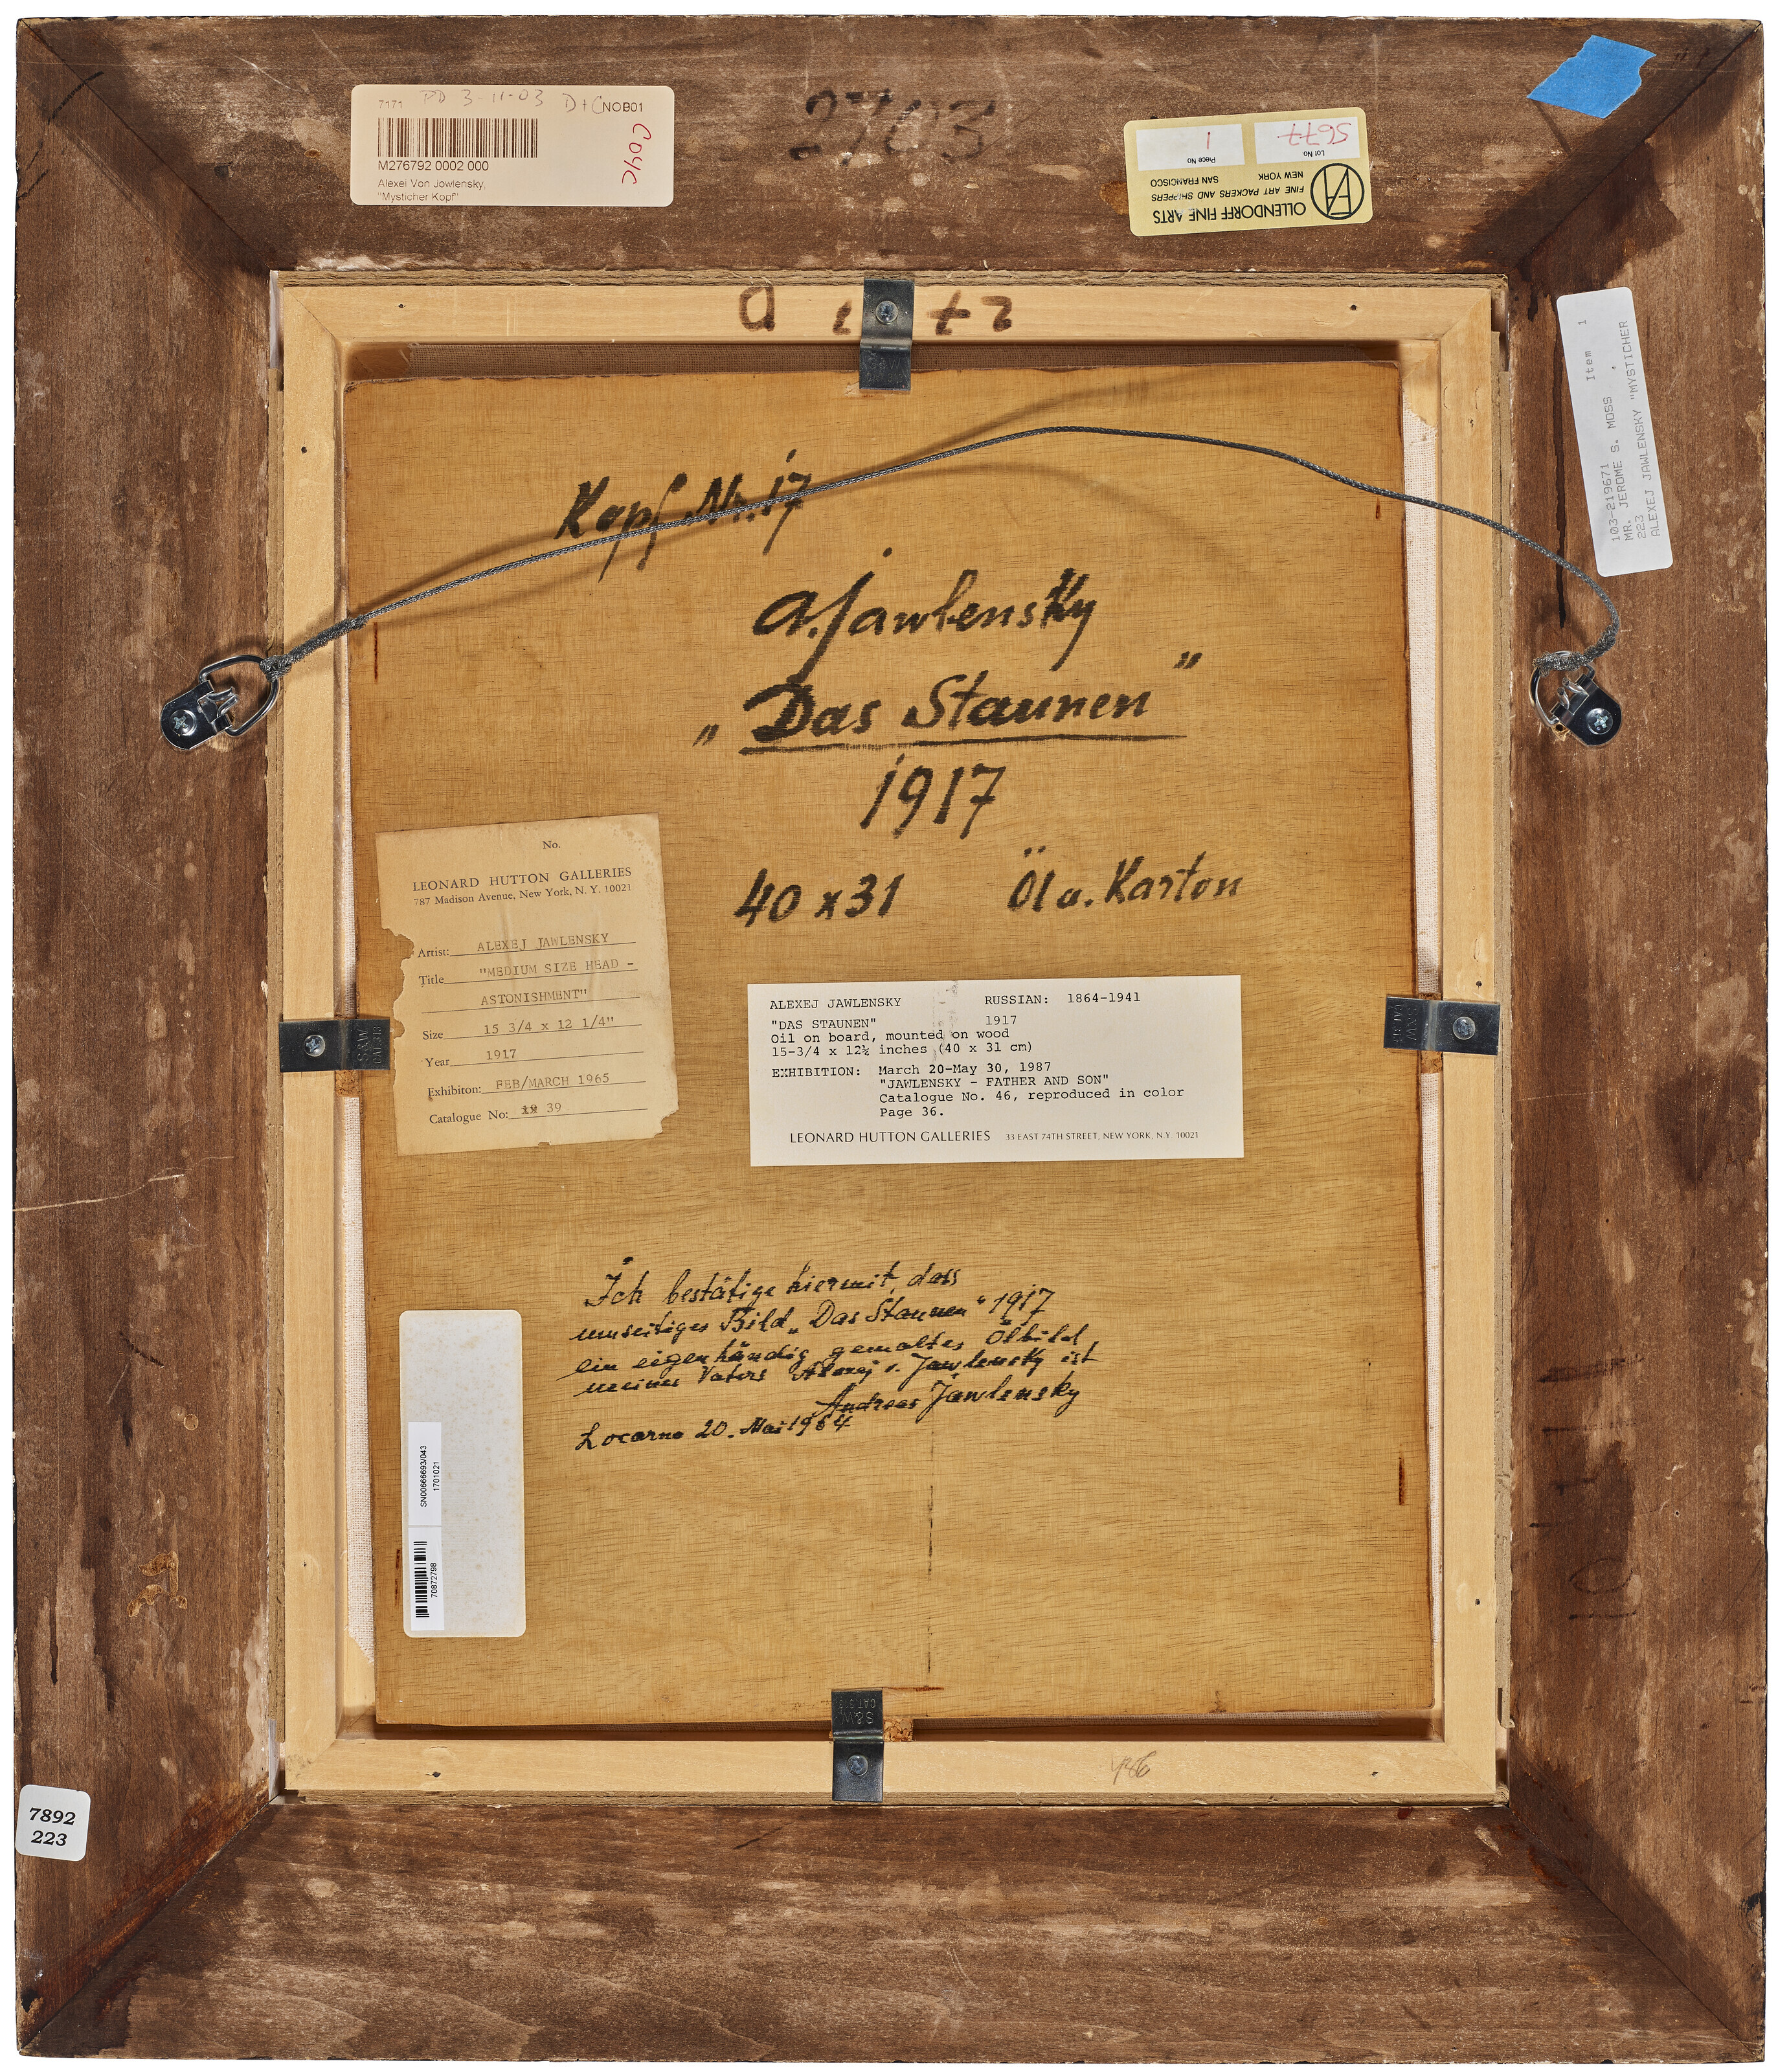 7171 PD 3-11-03 D+C NOB01
C04C
M276792 0002 000
Alexei Von Jowlensky,
"Mysticher Kopf"
2703
5677
1
Lot No
Piece No
NEW YORK
SAN FRANCISCO
FINE ART PACKERS AND SHIPPERS
OLLENDORFF FINE ARTS
103-219671 Item 1
MR. JEROME S. MOSS
223
ALEXEJ JAWLENSKY "MYSTICHER
Kopf Nr. 17
A. Jawlensky
„Das Staunen"
1917
40 x 31 Öl a. Karton
No.
LEONARD HUTTON GALLERIES
787 Madison Avenue, New York, N. Y. 10021
Artist: ALEXEJ JAWLENSKY
Title "MEDIUM SIZE HEAD -
ASTONISHMENT"
Size 15 3/4 x 12 1/4"
Year 1917
Exhibiton: FEB/MARCH 1965
Catalogue No: 39
ALEXEJ JAWLENSKY RUSSIAN: 1864-1941
"DAS STAUNEN" 1917
Oil on board, mounted on wood
15-3/4 x 12¼ inches (40 x 31 cm)
EXHIBITION: March 20-May 30, 1987
"JAWLENSKY - FATHER AND SON"
Catalogue No. 46, reproduced in color
Page 36.
LEONARD HUTTON GALLERIES 33 EAST 74TH STREET, NEW YORK, N.Y. 10021
S&W
CAT.313
S&W
S&W
CAT.313
Ich bestätige hiermit, dass
umseitiges Bild „Das Staunen" 1917
ein eigenhändig gemaltes Ölbild
meines Vaters Alexej v. Jawlensky ist
Andreas Jawlensky
Locarno 20. Mai 1964
SN00666693/043
1701021
70872798
7892
223